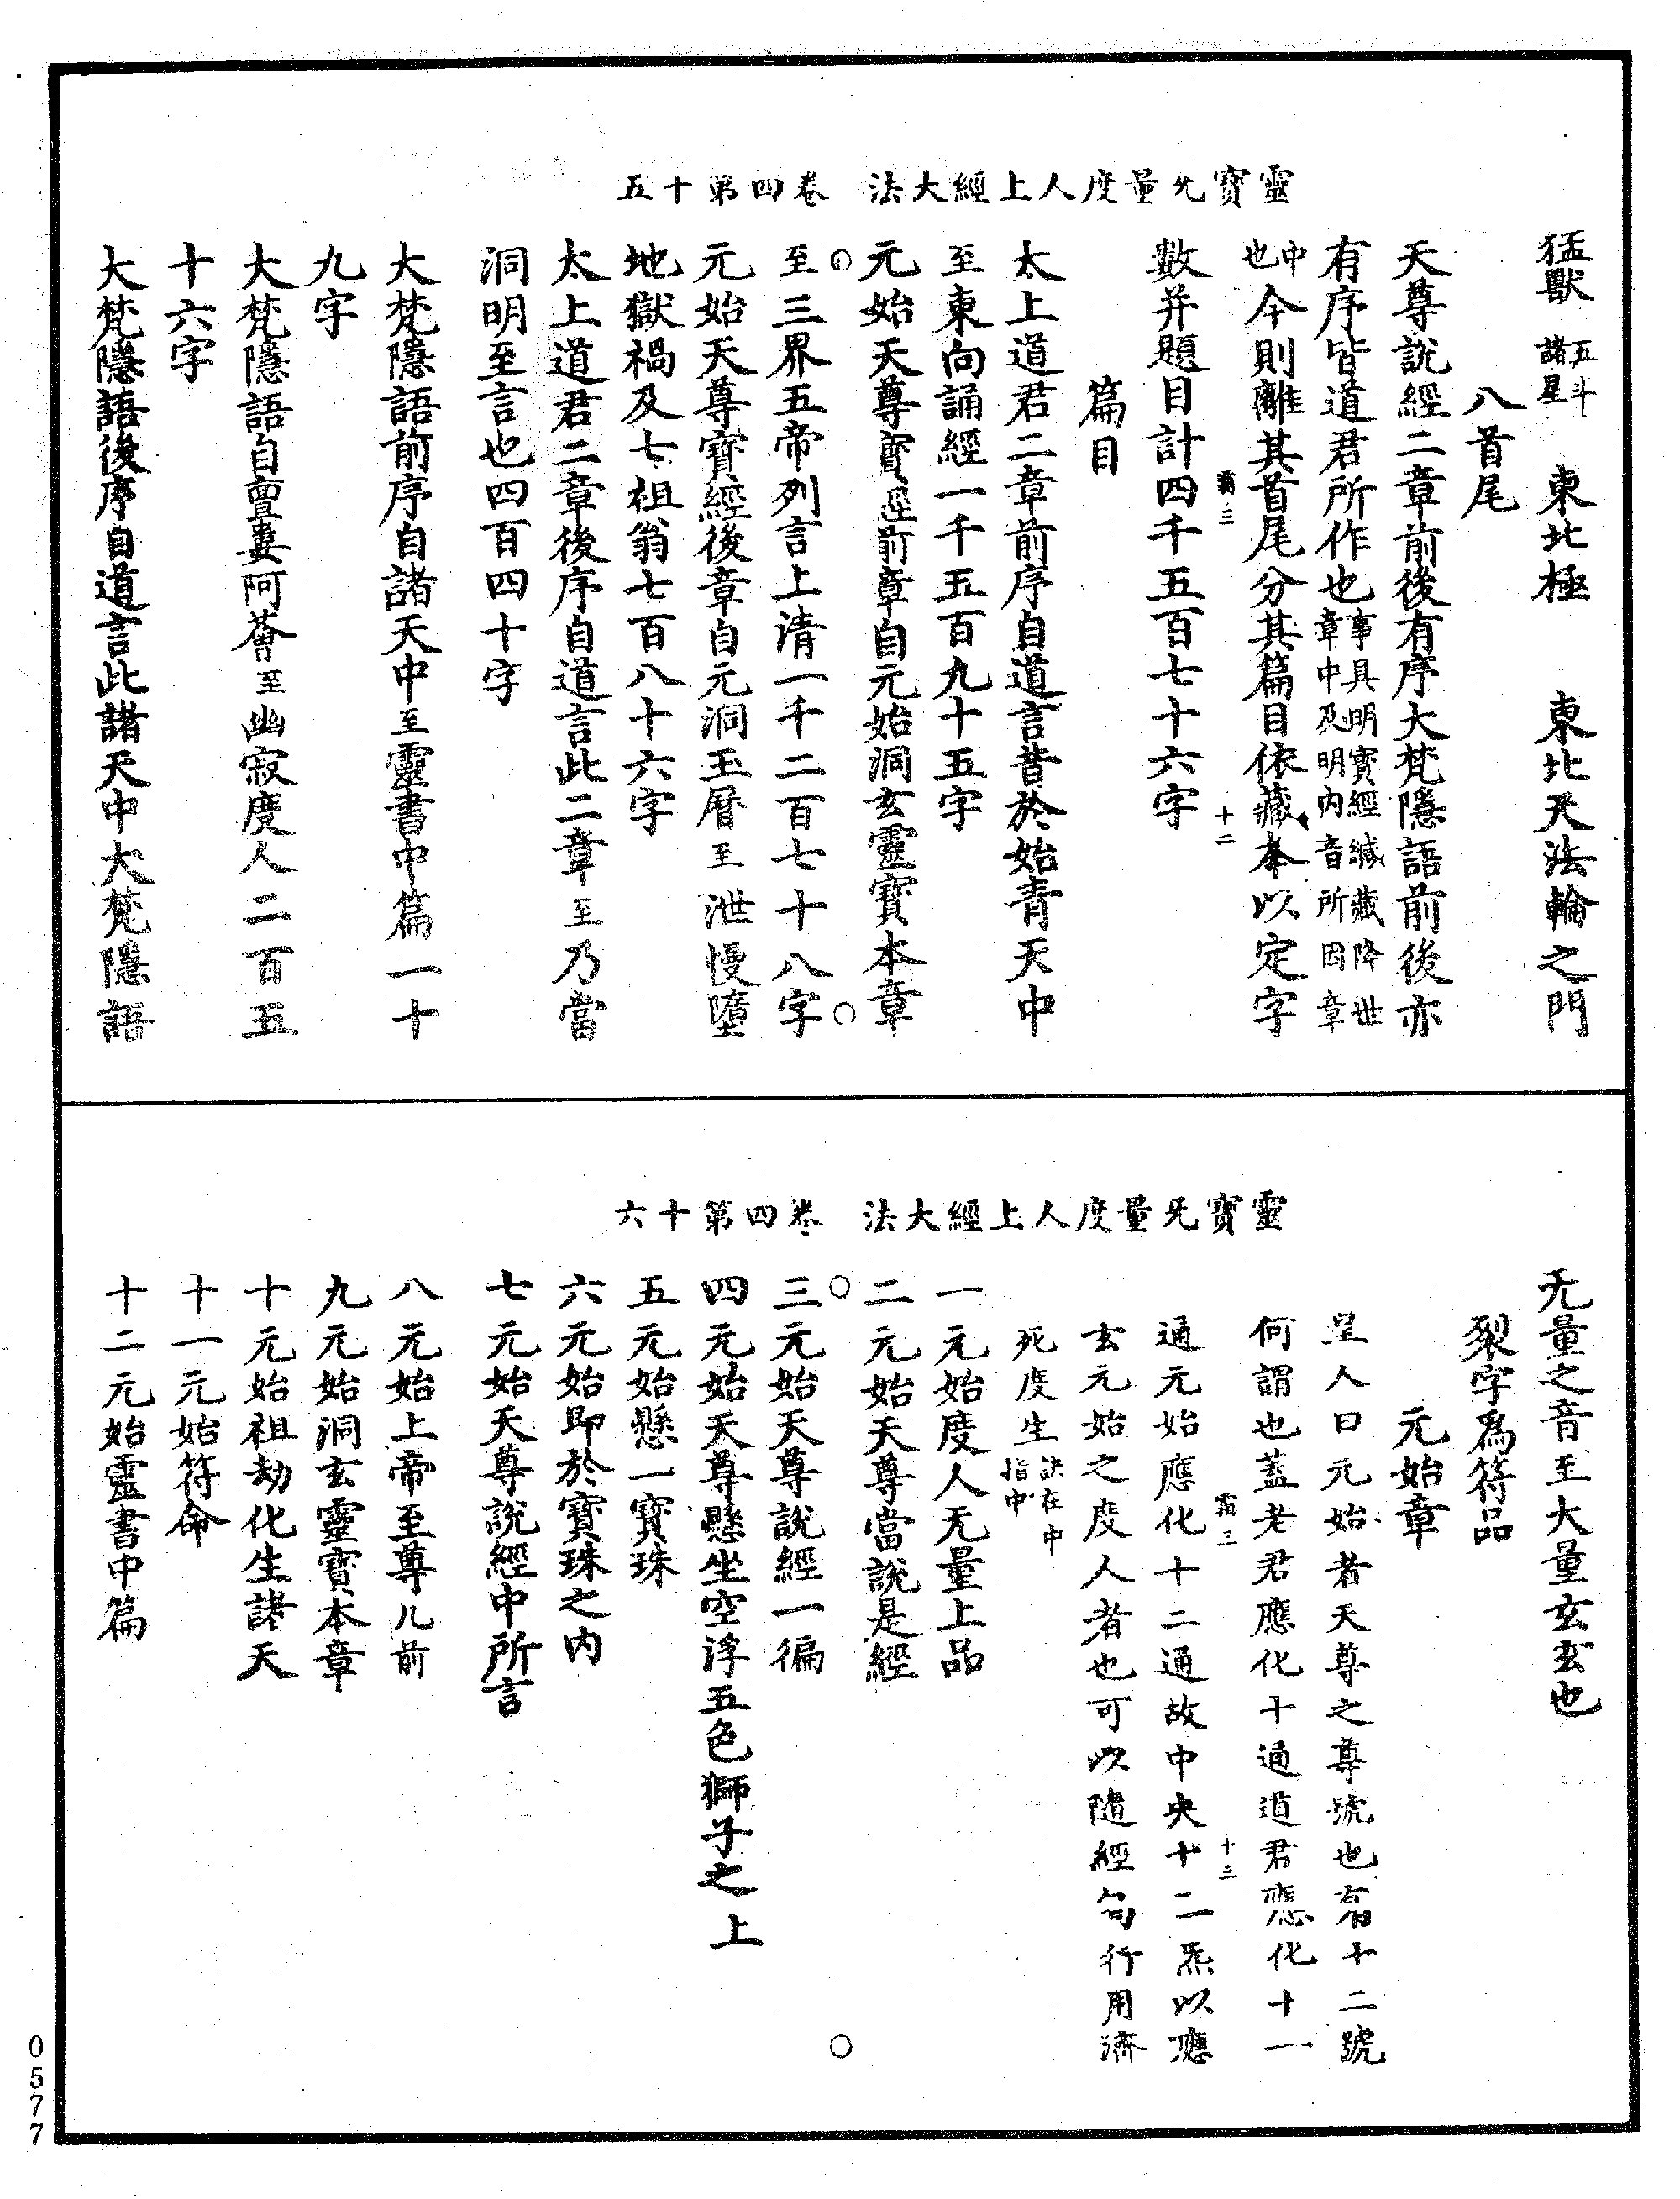 靈寶无量度人上經大法　卷四第十五
猛獸　五斗諸星　東北極　東北天法輪之門
八首尾
天尊說經二章前後有序大梵隱語前後亦
有序皆道君所作也事具明寶經緘藏降世章中及明內音所因章
中也今則離其首尾分其篇目依藏本以定字
霜三　十二
數并題目計四千五百七十六字
篇目
太上道君二章前序自道言昔於始青天中
至東向誦經一千五百九十五字
元始天尊寶經前章自元始洞玄靈寶本章
至三界五帝列言上清一千二百七十八字
元始天尊寶經後章自元洞玉曆至泄慢墮
地獄禍及七祖翁七百八十六字
太上道君二章後序自道言此二章至乃當
洞明至言也四百四十字
大梵隱語前序自諸天中至靈書中篇一十
九字
大梵隱語自亶婁阿薈至幽寂度人二百五
十六字
大梵隱語後序自道言此諸天中大梵隱語
靈寶无量度人上經大法　卷四第十六
无量之音至大量玄玄也
裂字爲符品
元始章
呈人曰元始者天尊之尊號也有十二號
何謂也蓋老君應化十通道君應化十一
霜三　十三
通元始應化十二通故中央十二炁以應
玄元始之度人者也可以隨經句行用濟
死度生訣在中指中
一元始度人无量上品
二元始天尊當說是經
三元始天尊說經一徧
四元始天尊懸坐空浮五色獅子之上
五元始懸一寶珠
六元始即於寶珠之內
七元始天尊說經中所言
八元始上帝至尊几前
九元始洞玄靈寶本章
十元始祖劫化生諸天
十一元始符命
十二元始靈書中篇
0577